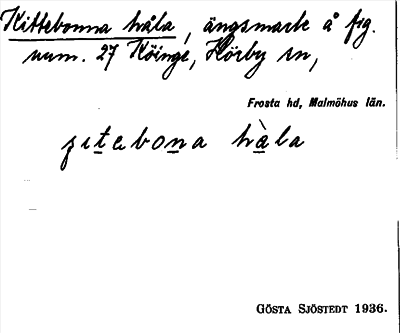 Kittebonna håla, ängsmark å fig.
num. 27 Köinge, Hörby sn,
Frosta hd, Malmöhus län.
ʃıtebona hàla
GÖSTA SJÖSTEDT 1936.